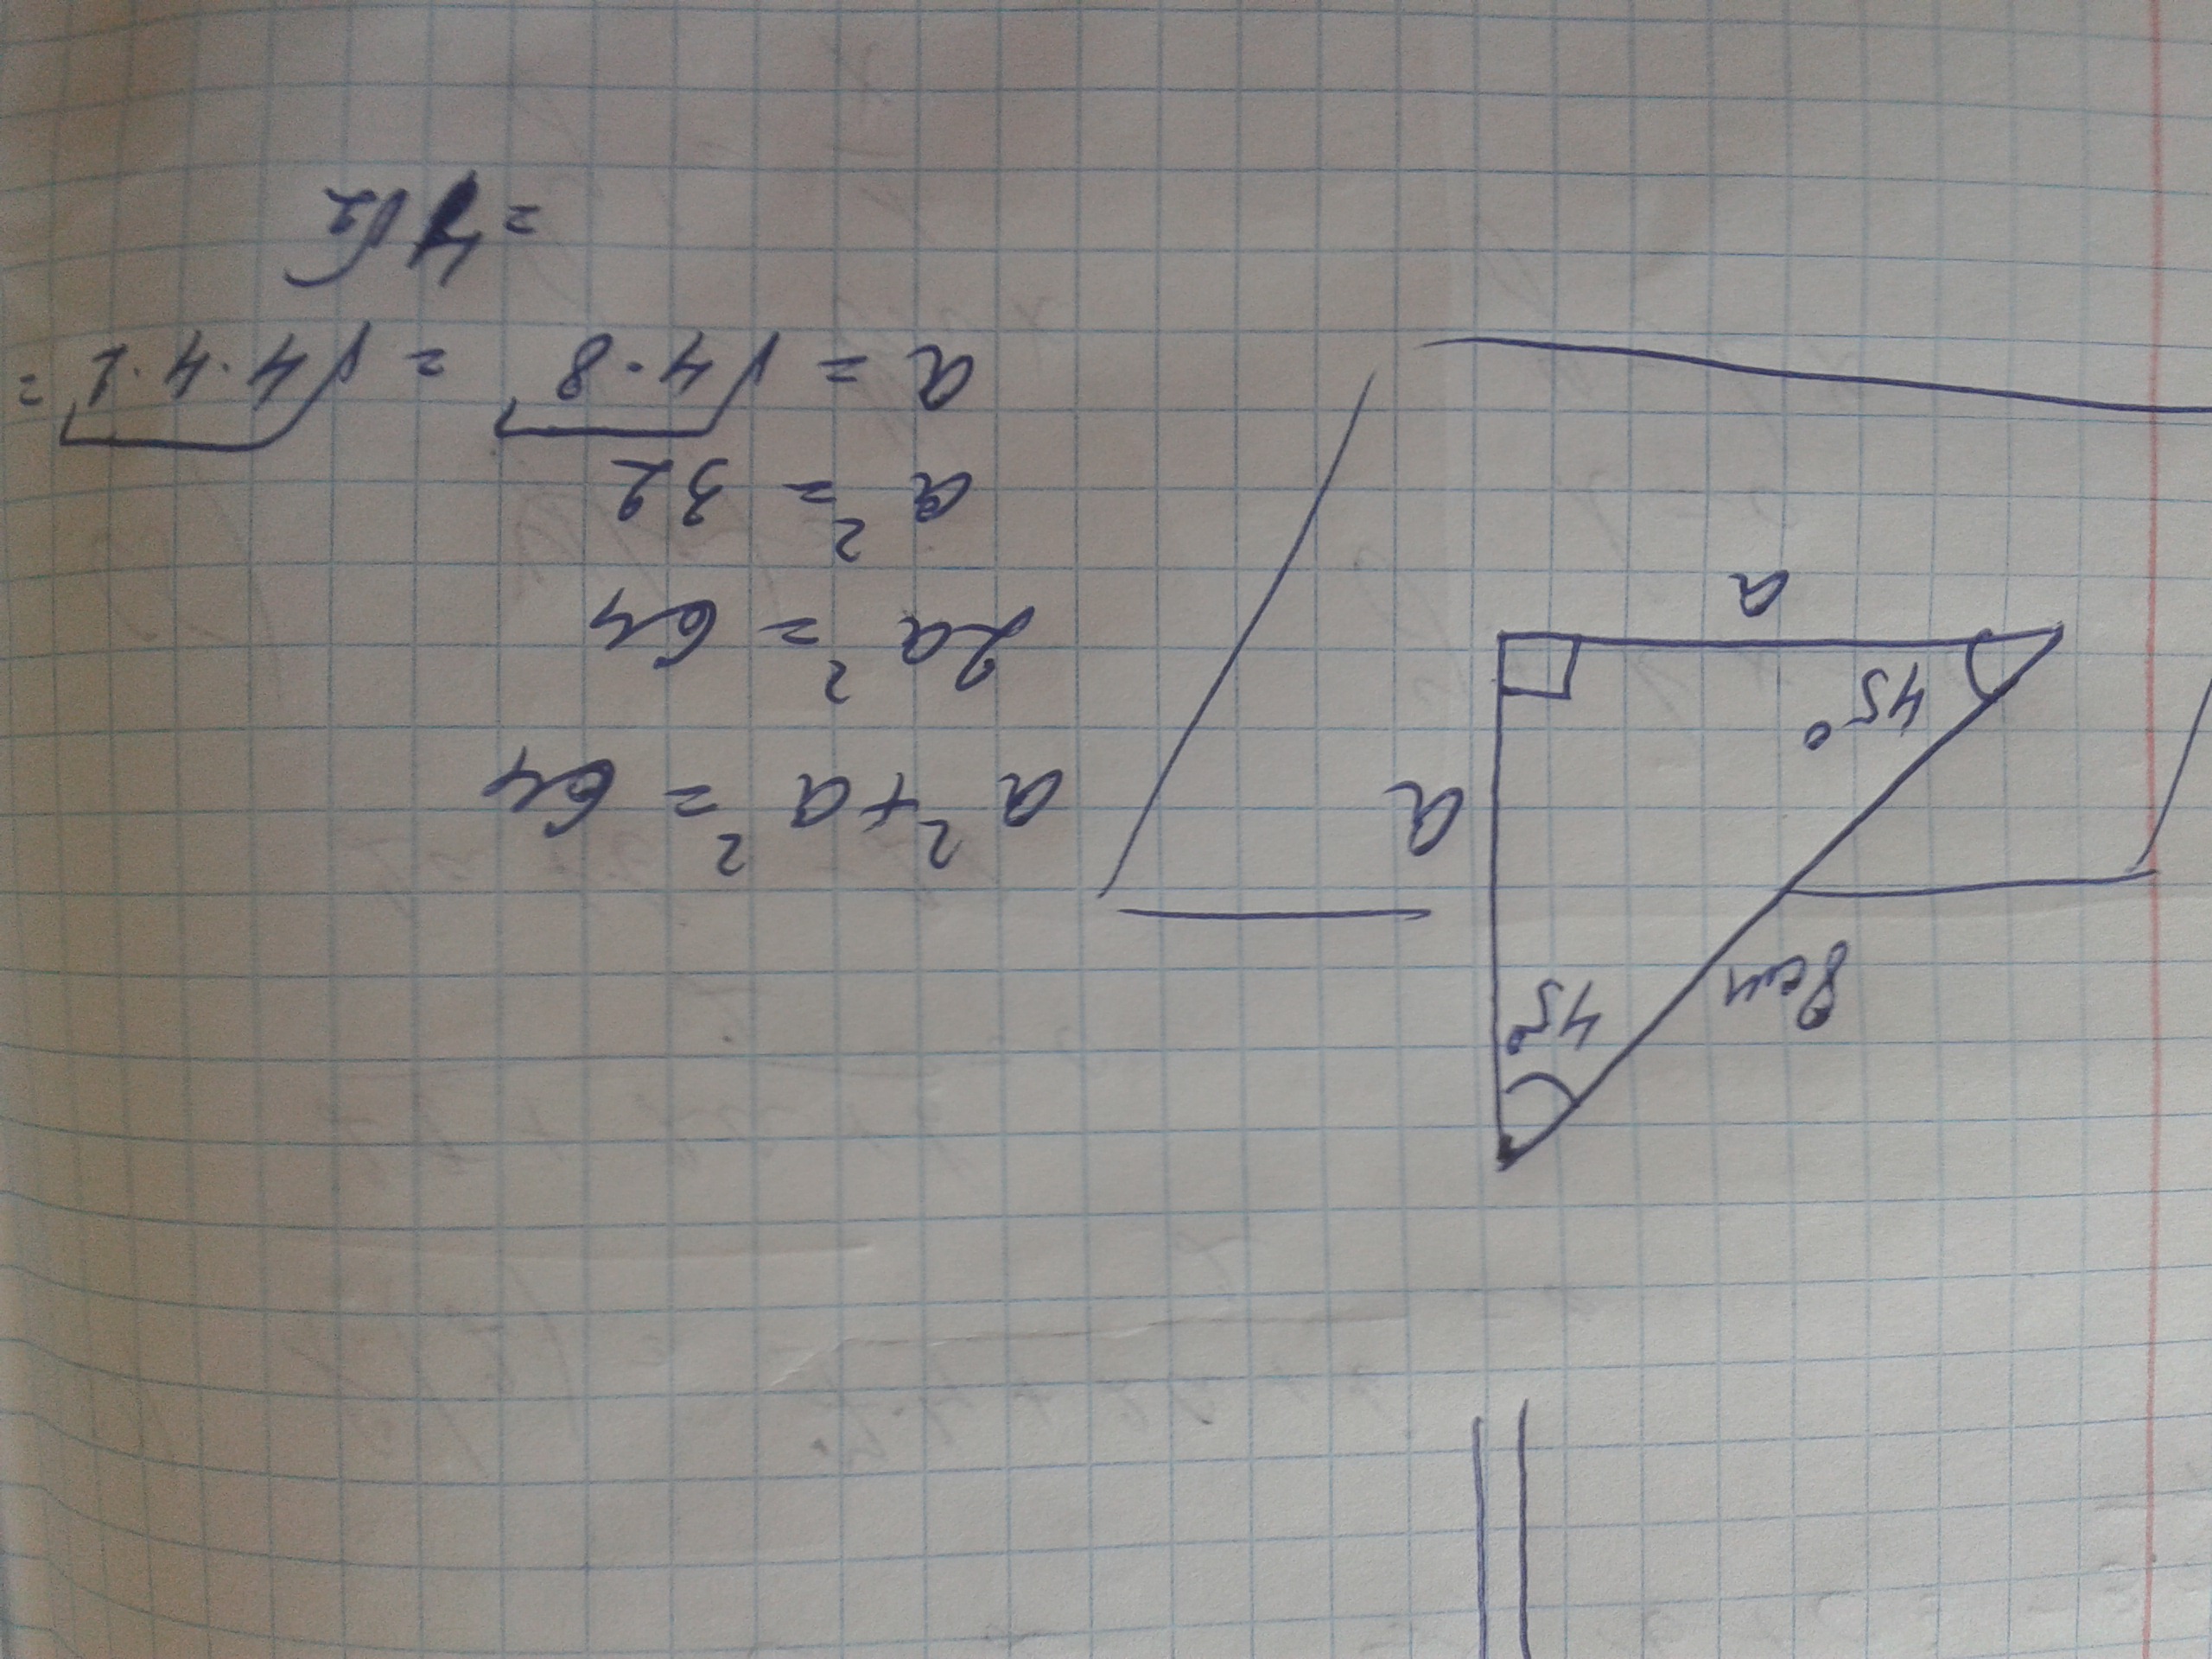 45°
8см
a
45°
a
a² + a² = 64
2a² = 64
a² = 32
a = √4·8 = √4·4·2 =
= 4√2